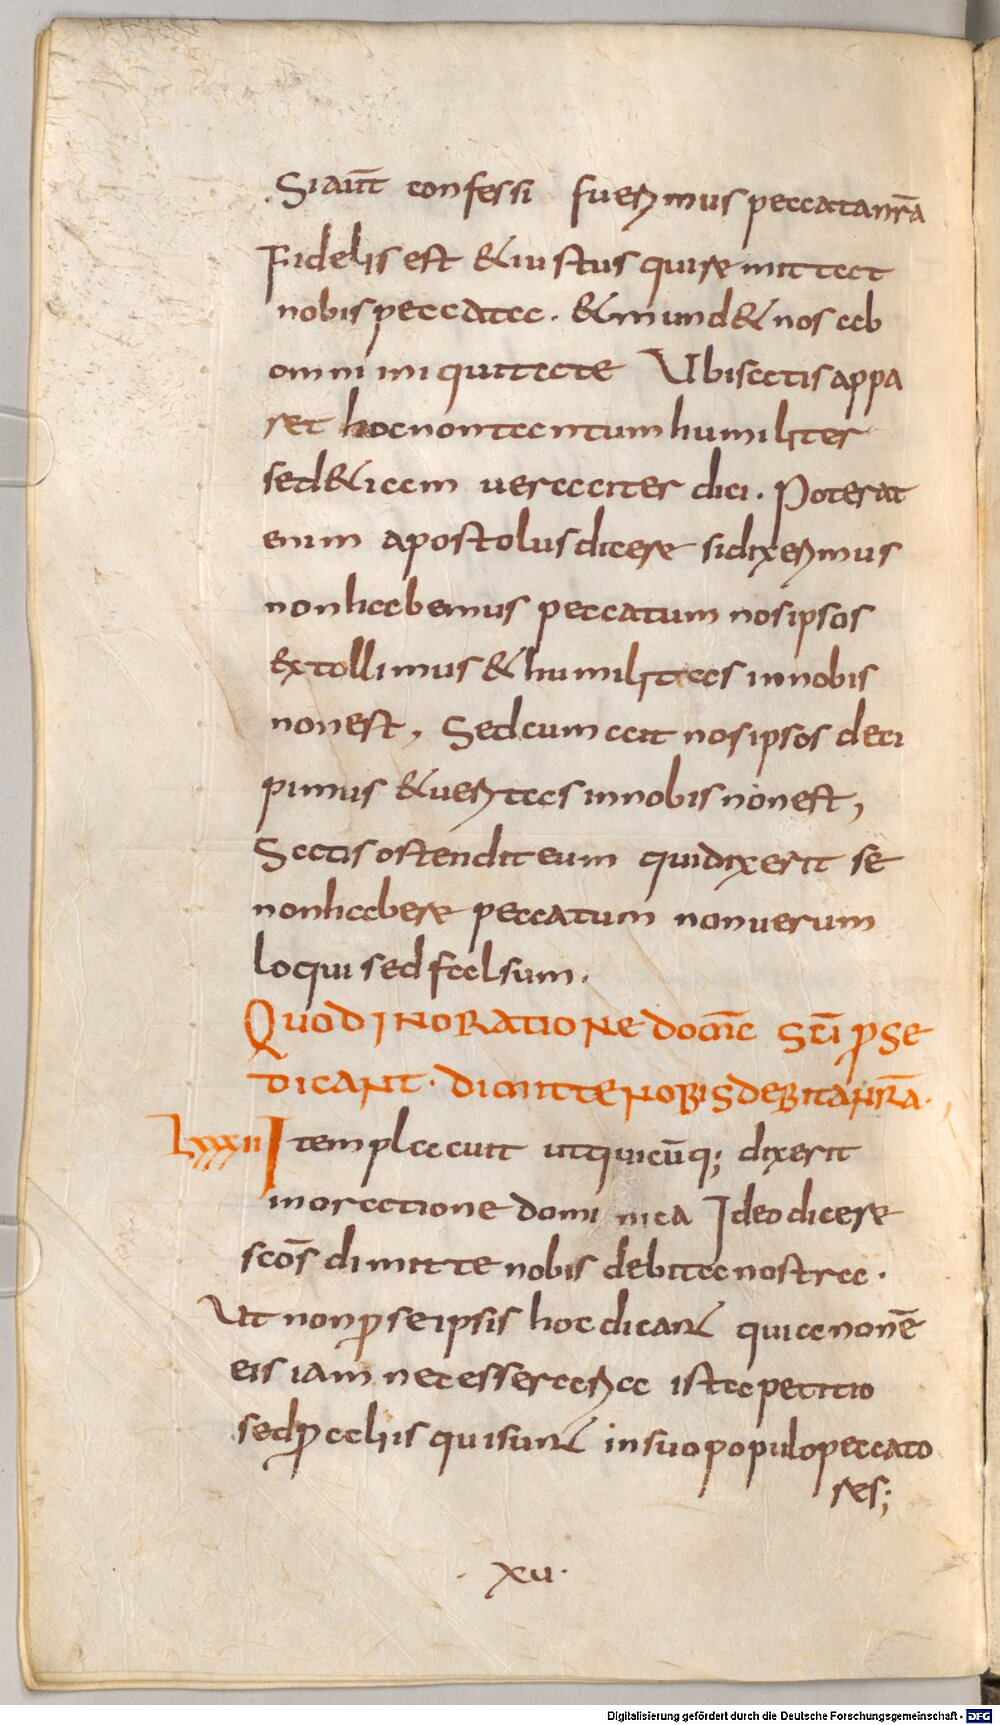 Siaūt confessi fuerimus peccatanr̄a
Fidelis est &iustus quiremittat
nobispeccata. &mund&nosab
omni iniquitate Ubisatisappa
ret hocnontantumhumiliter
sed&iam ueraciter dici. Poterat
enim apostolusdicere sidixerimus
nonhabemus peccatum nosipsos
extollimus &humilitas innobis
nonest, Sedcumait nosipsos deci
pimus &ueritas innobisnonest,
Satisostenditeum quidixerit se
nonhabere peccatum nonuerum
loqui sedfalsum.
QUODINORATIONEDOMĪC SC̄I P̱SE
DICANT. DIMITTENOBISDEBITANR̄A.
Lxxxii Itemplacuit utquicūq; dixerit
inorationedominica Ideodicere
sc̄os dimittenobis debitanostra.
Ut nonp̱seipsis hocdicant quianonē
eis iam necesseraria istapetitio
sedp̱aliis quisunt insuopopulopeccato
res;
. xu.
Digitalisierung gefördert durch die Deutsche Forschungsgemeinschaft - DFG